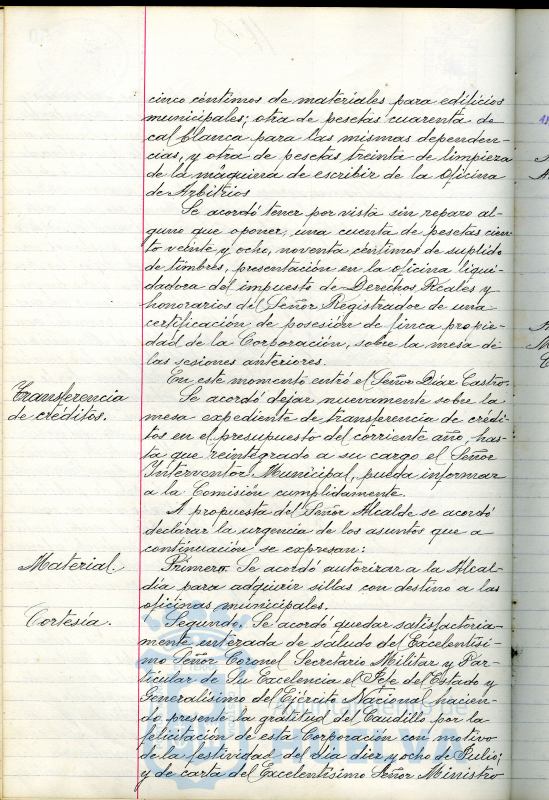 cinco céntimos de materiales para edificios
municipales; otra de pesetas cuarenta de
cal blanca para las mismas dependen-
cias, y otra de pesetas treinta de limpieza
de la máquina de escribir de la Oficina
de Arbitrios
Se acordó tener por vista sin reparo al-
guno que oponer, una cuenta de pesetas cien-
to veinte y ocho, noventa céntimos de suplido
de timbres, presentación en la oficina liqui-
dadora del impuesto de Derechos Reales y
honorarios del Señor Registrador de una
certificación de posesión de finca propie-
dad de la Corporación, sobre la mesa de
las sesiones anteriores.
En este momento entró el Señor Díaz Castro.
Transferencia
de créditos.
Se acordó dejar nuevamente sobre la
mesa expediente de transferencia de crédi-
tos en el presupuesto del corriente año, has-
ta que reintegrado a su cargo el Señor
Interventor Municipal, pueda informar
a la Comisión cumplidamente.
A propuesta del Señor Alcalde se acordó
declarar la urgencia de los asuntos que a
continuación se expresan:
Material.
Primero. Se acordó autorizar a la Alcal-
día para adquirir sillas con destino a las
oficinas municipales.
Cortesía.
Segundo. Se acordó quedar satisfactoria-
mente enterada de saludo del Excelentísi-
mo Señor Coronel Secretario Militar y Par-
ticular de Su Excelencia el Jefe del Estado y
Generalísimo del Ejército Nacional hacien-
do presente la gratitud del Caudillo por la
felicitación de esta Corporación con motivo
de la festividad del día diez y ocho de Julio;
y de carta del Excelentísimo Señor Ministro
HUELVA